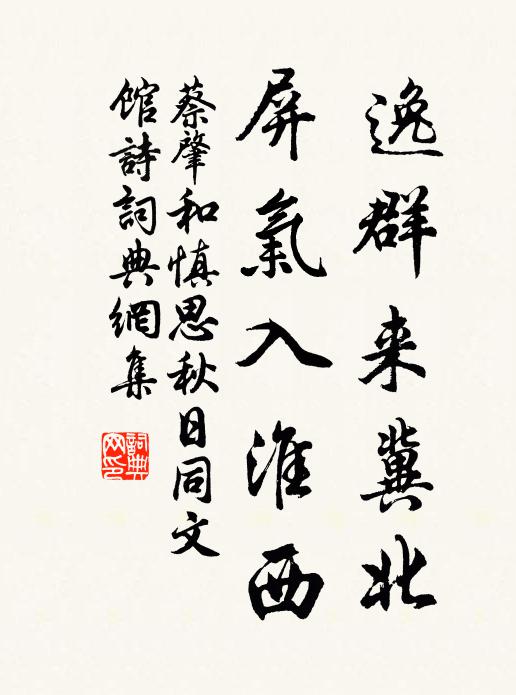 逸群来冀北
屏氣入淮西
蔡肇和慎思秋日同文
館詩詞典網集
詞典
网印